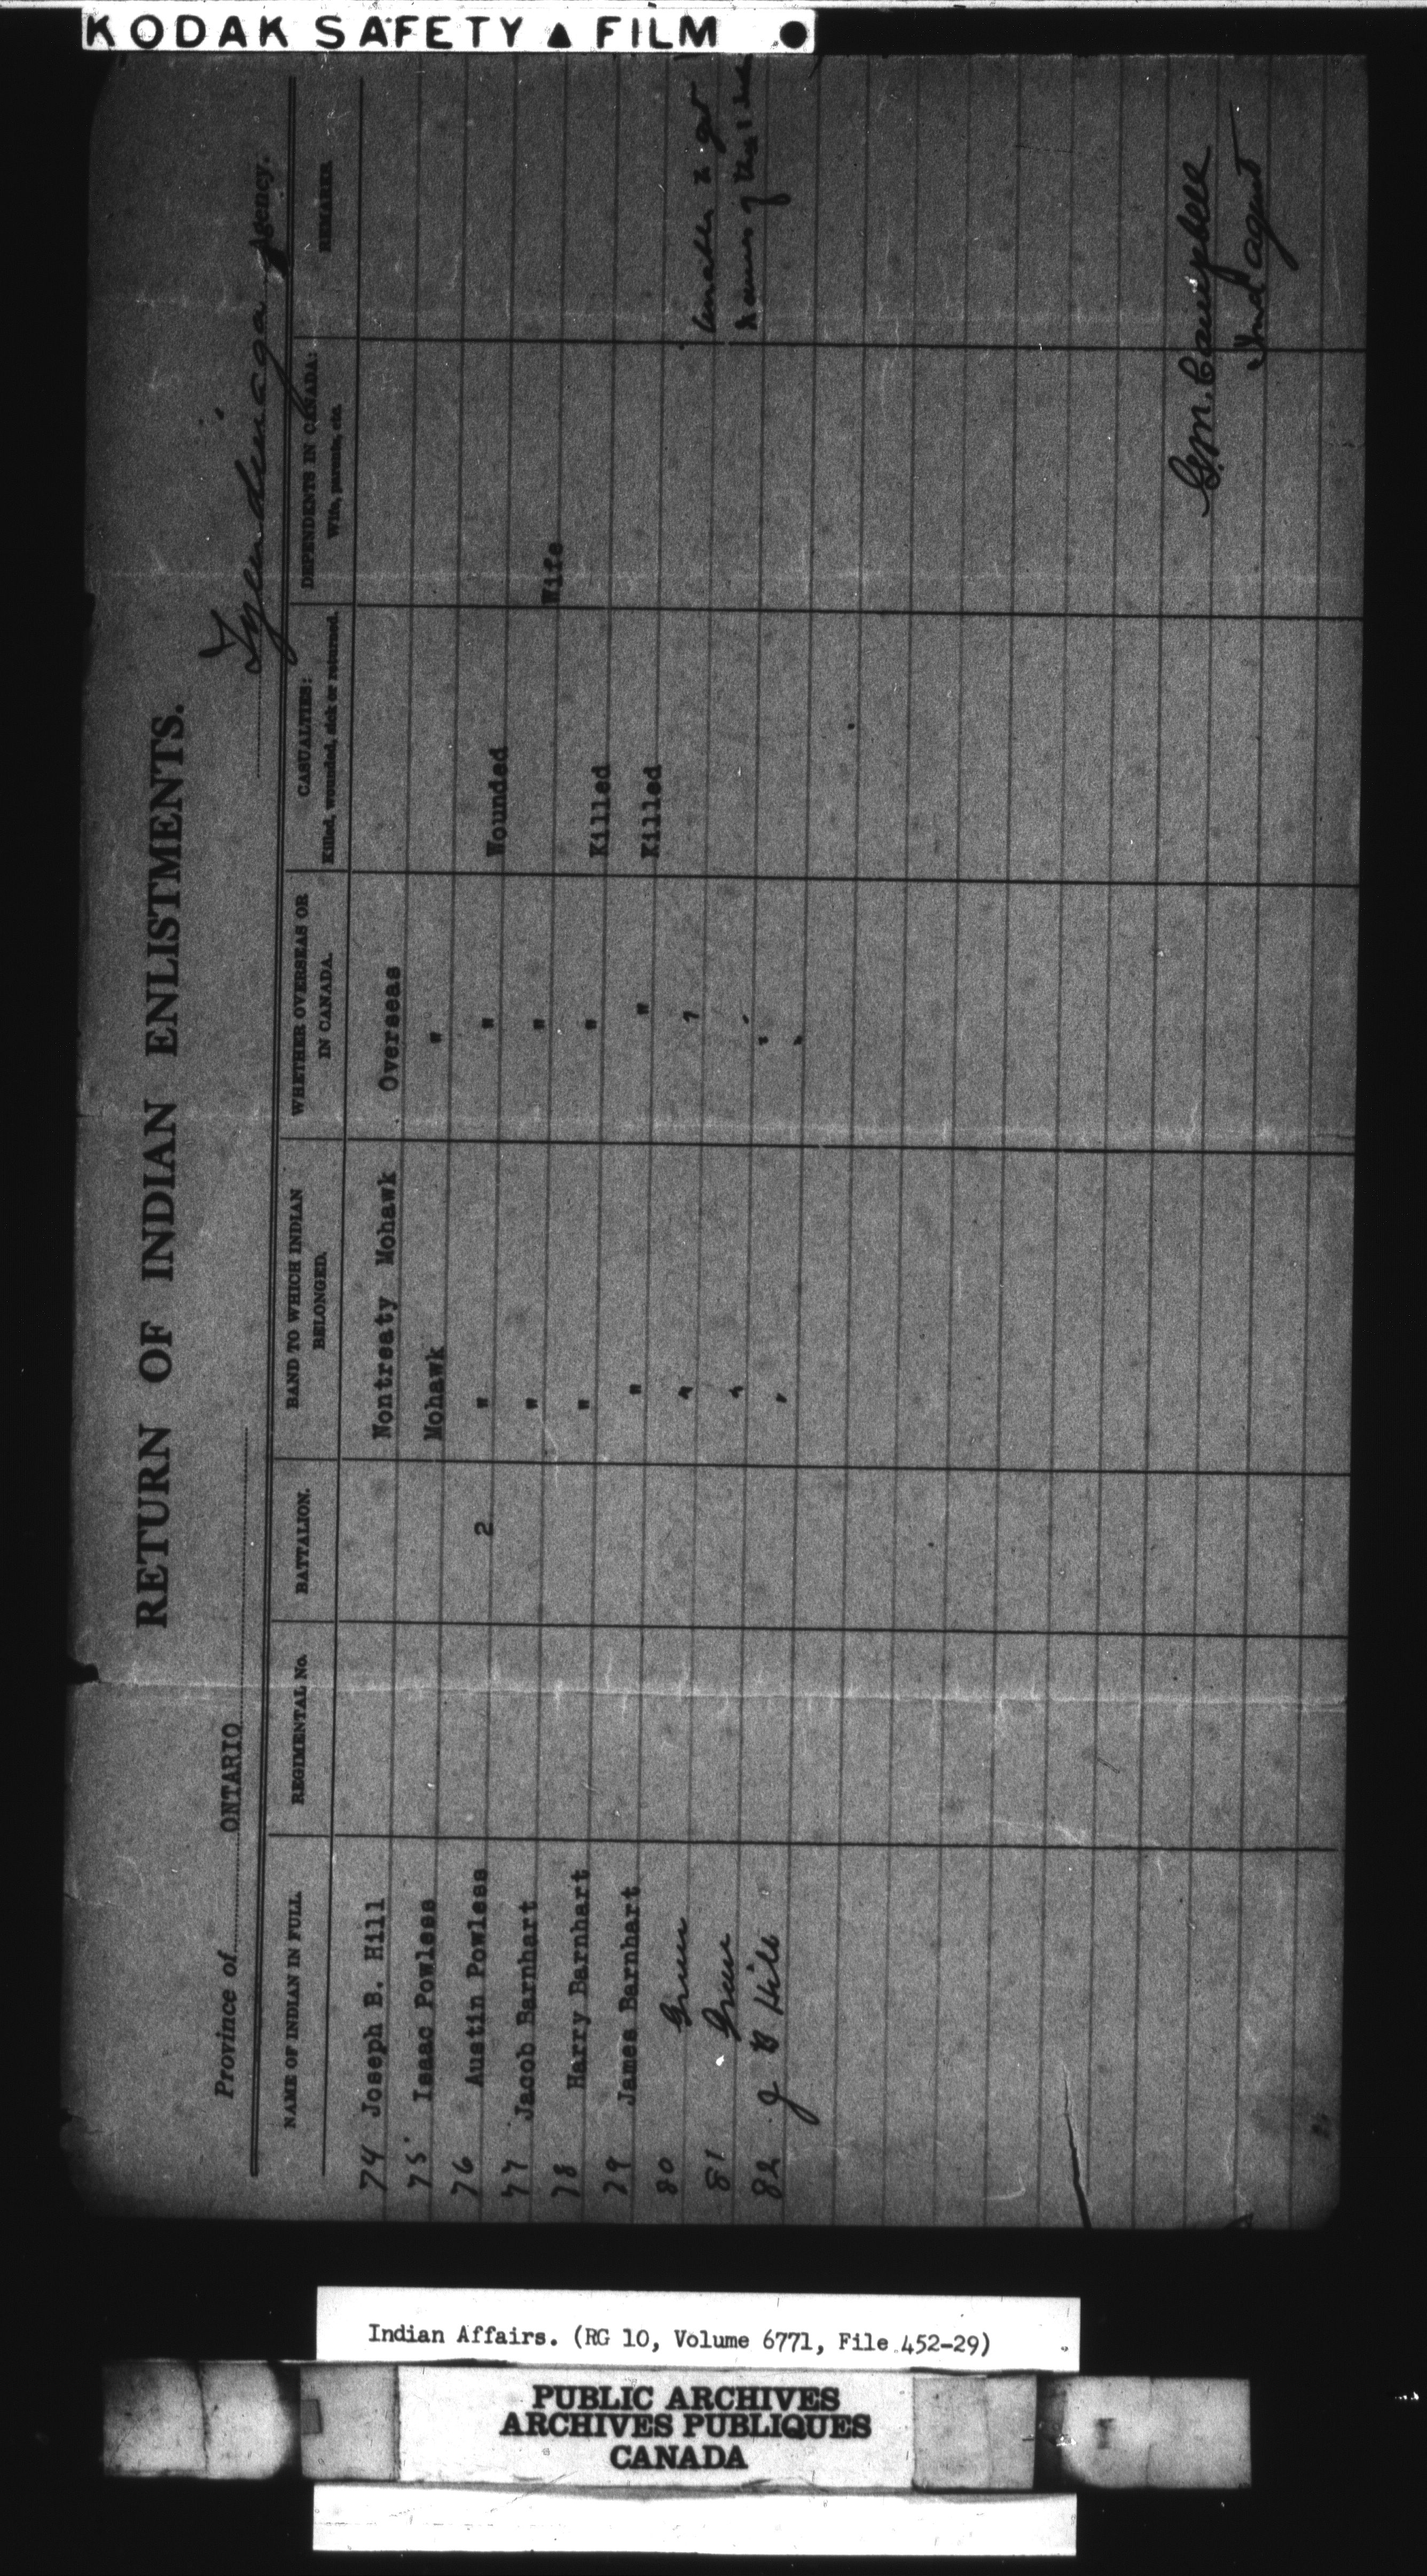 KODAK SAFETY ▲ FILM ●
RETURN OF INDIAN ENLISTMENTS.
Province of ONTARIO Tyendinaga Agency.
NAME OF INDIAN IN FULL REGIMENTAL No. BATTALION. BAND TO WHICH INDIAN BELONGED. WHETHER OVERSEAS OR IN CANADA. CASUALTIES: Killed, wounded, sick or returned. DEPENDENTS IN CANADA: Wife, parents, etc. REMARKS
74 Joseph B. Hill Nontreaty Mohawk Overseas
75 Isaac Powless Mohawk "
76 Austin Powless 2 " " Wounded
77 Jacob Barnhart " " Wife
78 Harry Barnhart " " Killed
79 James Barnhart " " Killed
80 Green " " Unable to get
81 Green " " names of these
82 J B Hill " "
G.M. Campbell
Ind agent
Indian Affairs. (RG 10, Volume 6771, File 452-29)
PUBLIC ARCHIVES
ARCHIVES PUBLIQUES
CANADA